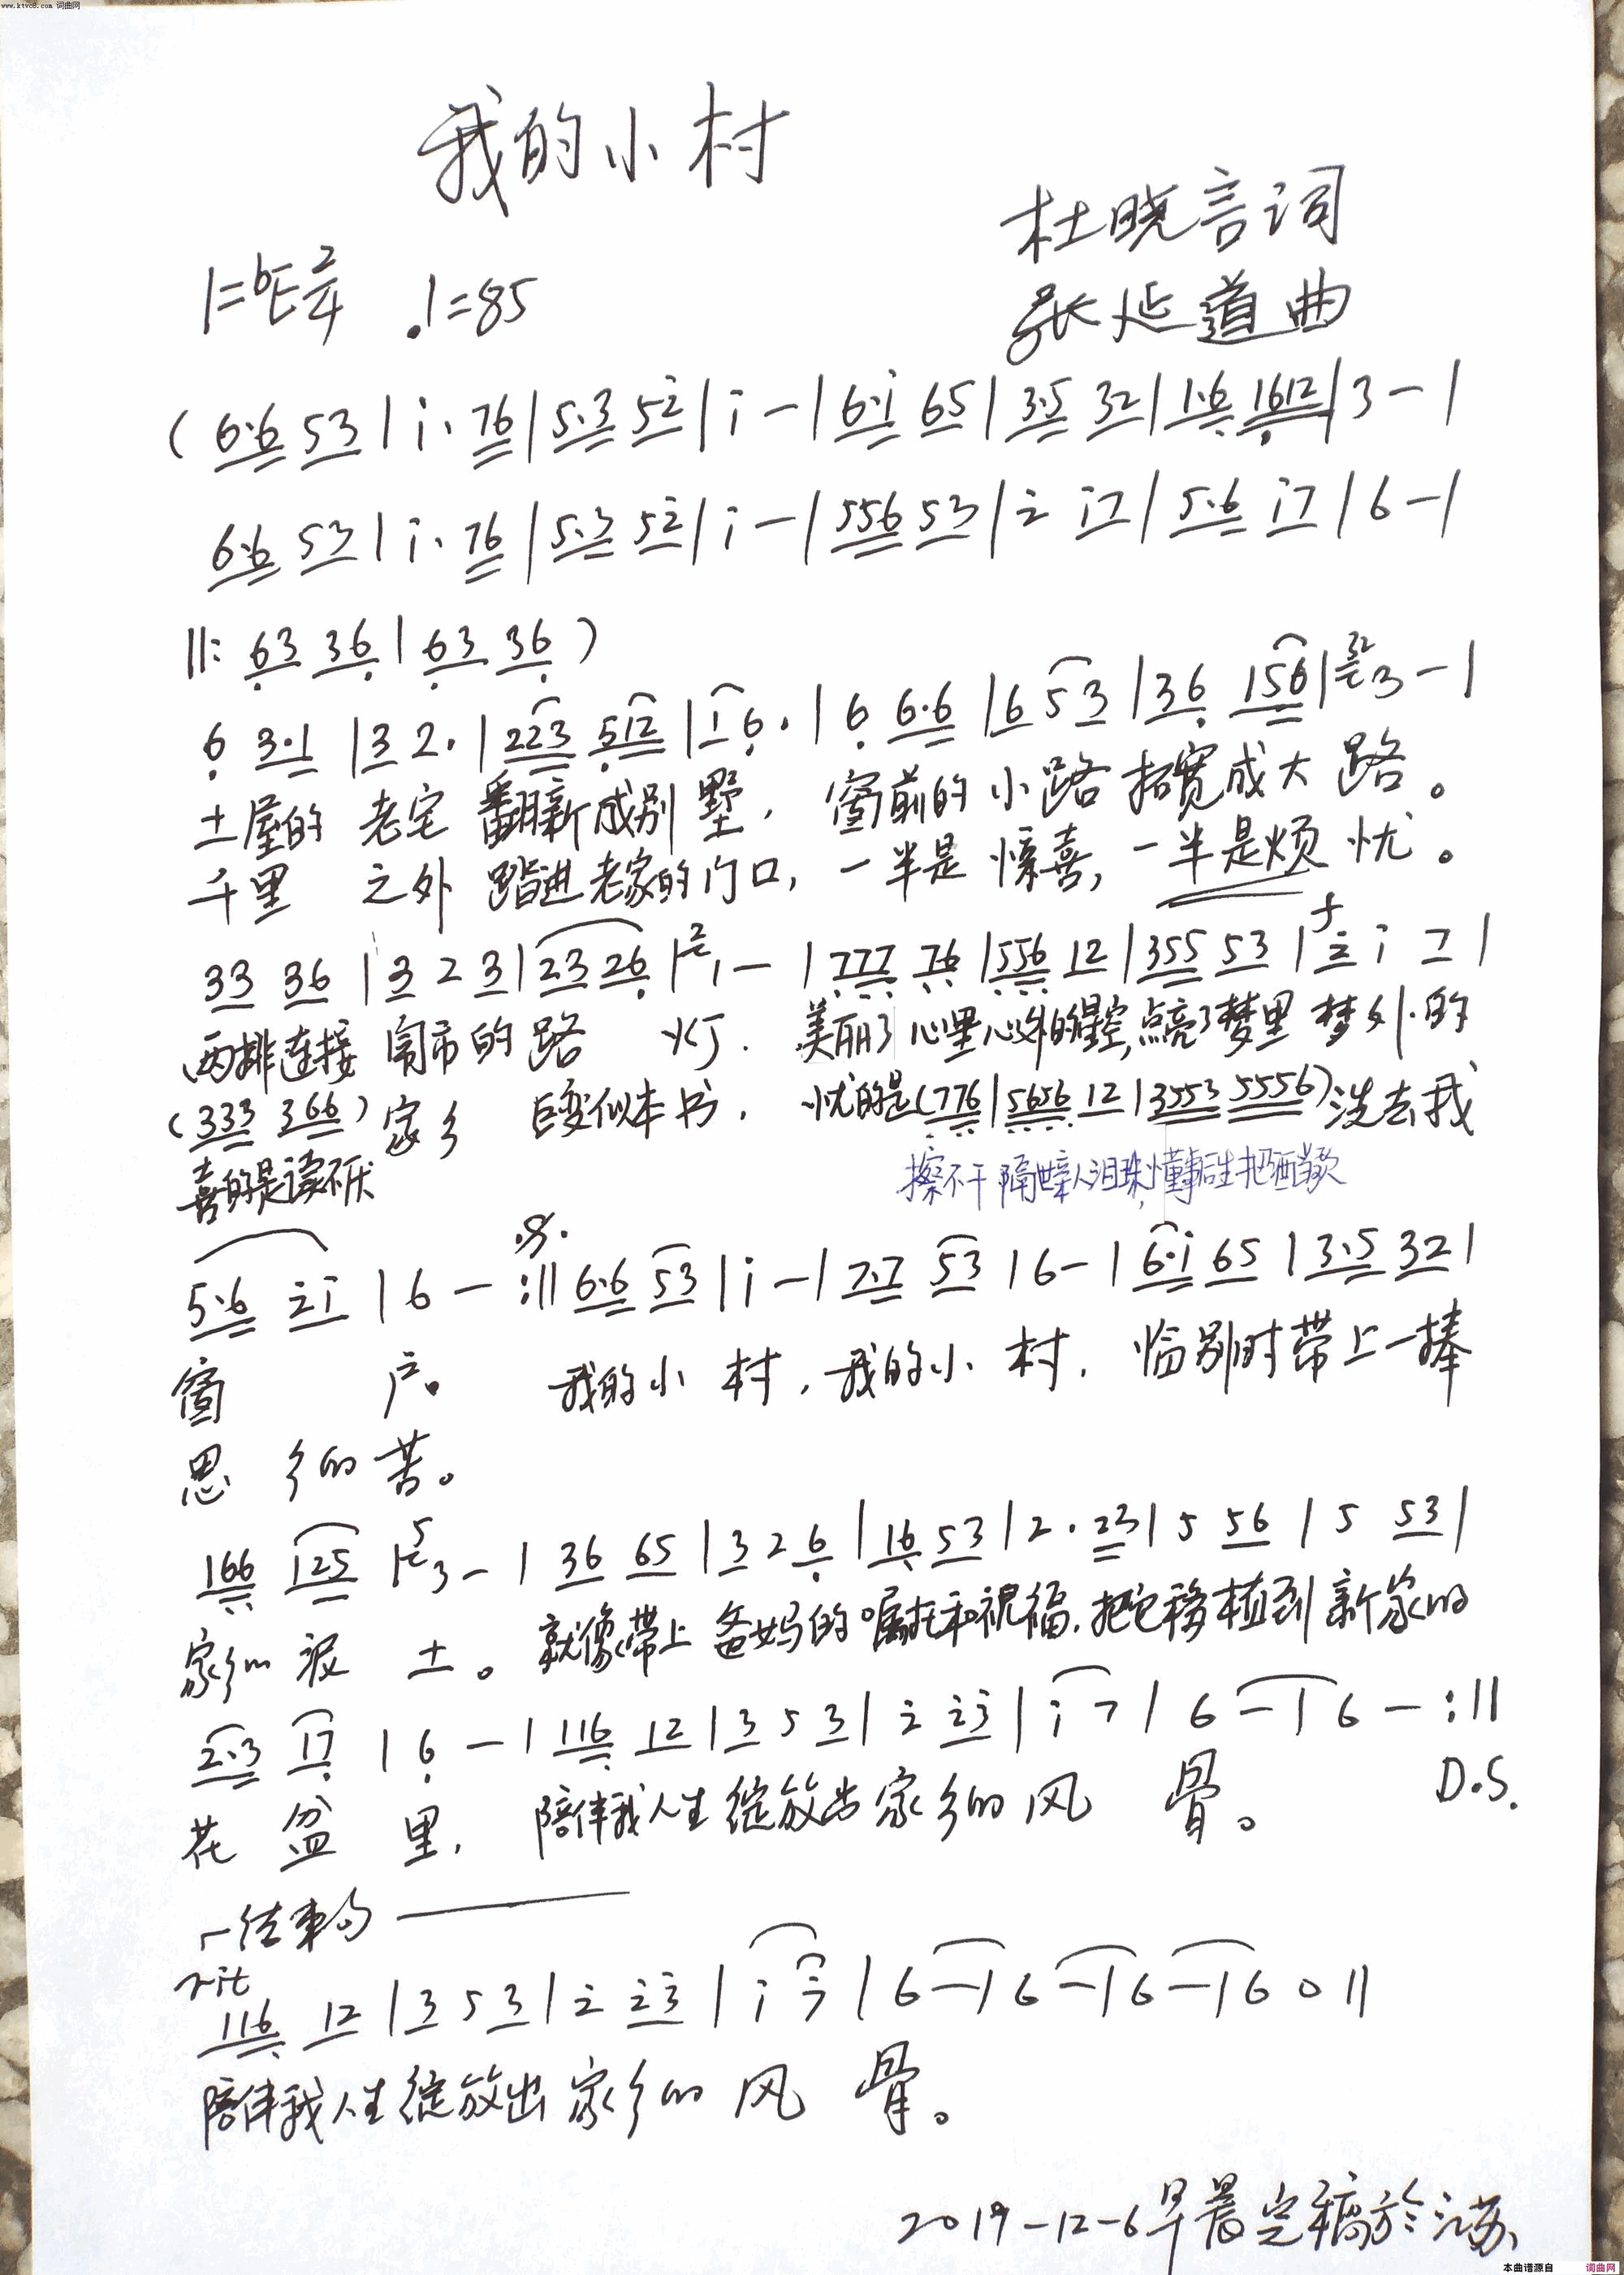 www.ktvc8.com 词曲网
我的小村
杜晓言词
1=bE 2/4 ♩=85
张延道曲
(6·6 53|i· 76|5·3 52|i -|6·i 65|3·5 32|1·6 1612|3 -|
6·6 53|i· 76|5·3 52|i -|556 53|2 i7|5·6 i7|6 -|
||: 63 36|63 36)
6 3·1|3 2·|223 512|1 6·|6 6·6|6 53|36 156|32 3 -|
土屋的 老宅 翻新成别墅， 窗前的小路 拓宽成大路。
千里 之外 踏进老家的门口， 一半是 惊喜， 一半是烦忧。
33 36|3 2 3|23 26|2 1 -|777 76|556 12|355 53|2 i 7|
两排连接 闹市的路 灯． 美丽了心里心外的星空，点亮了梦里梦外的
(333 366) 家乡 巨变似本书． 忧的是(776|5656 12|3553 5556)洗去我
喜的是读不厌
擦不干 隔世亲人泪珠，懂事后生把酒当歌
5·6 2i|6 - :|| 6·6 53|i -|7·7 53|6 -|6·i 65|3·5 32|
窗 户。 我的小村，我的小村， 临别时带上一捧
思 乡的苦。
166 125|5 3 -|36 65|3 2 6|16 53|2· 23|5 56|5 53|
家乡的泥土。 就像带上爸妈的嘱托和祝福．把它移植到新家的
2·3 17|6 -|116 12|3 5 3|2 23|i 7|6 -|6 - :||
花盆里， 陪伴我人生绽放出家乡的风 骨。 D.S.
结束句
rit
116 12|3 5 3|2 23|i 7|6 -|6 -|6 -|6 0||
陪伴我人生绽放出家乡的风 骨。
2019-12-6早晨完稿於江苏
本曲谱源自 词曲网